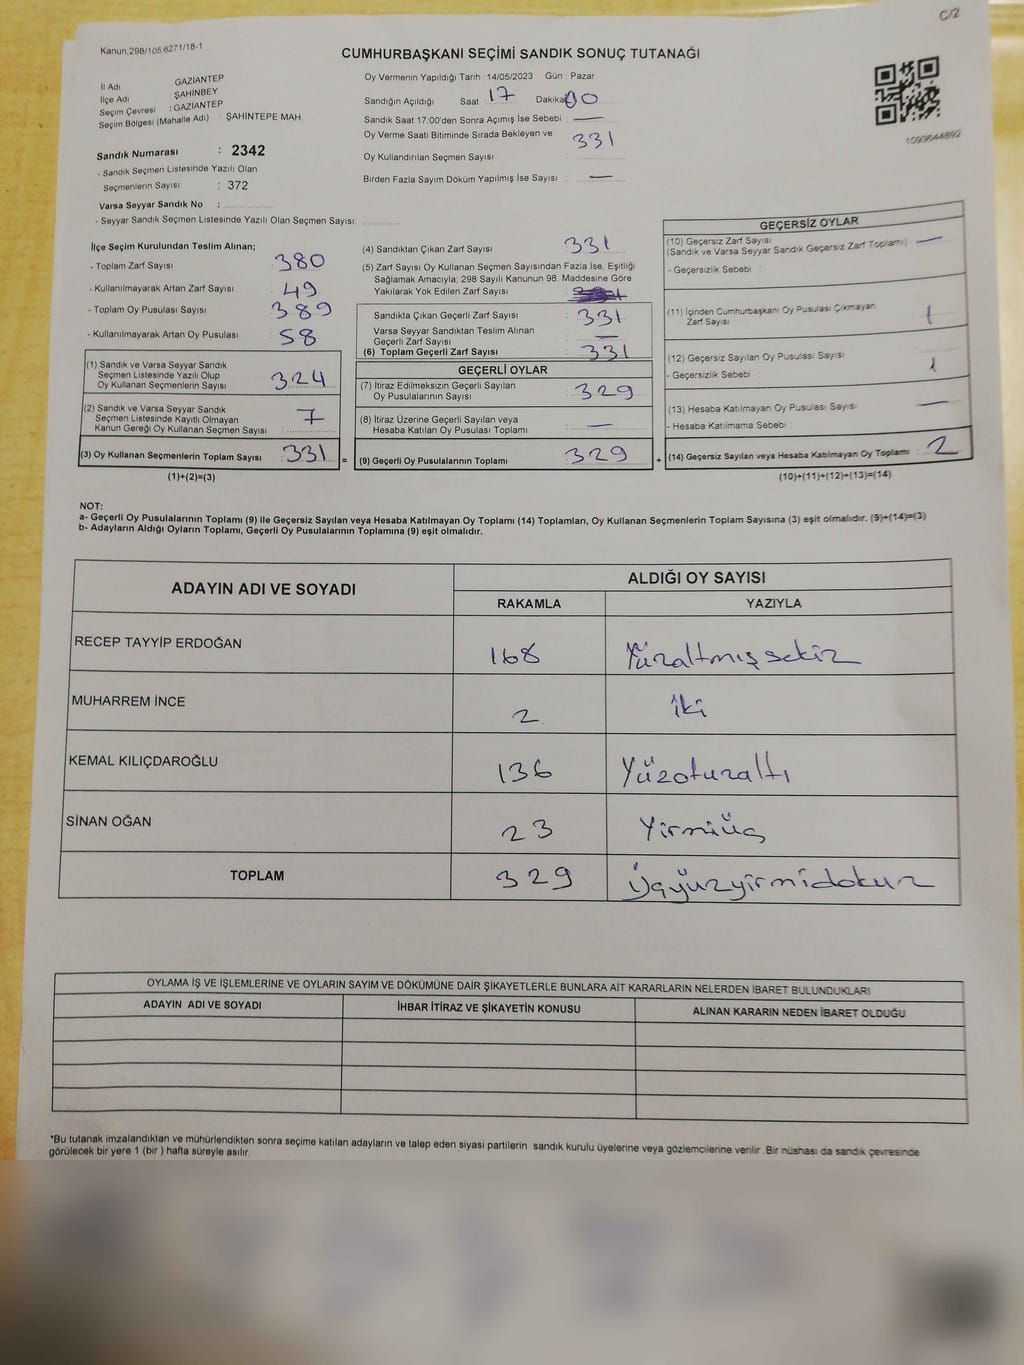 C/2
Kanun,298/105,6271/18-1
CUMHURBAŞKANI SEÇİMİ SANDIK SONUÇ TUTANAĞI
İl Adı : GAZİANTEP
İlçe Adı : ŞAHİNBEY
Seçim Çevresi : GAZİANTEP
Seçim Bölgesi (Mahalle Adı) : ŞAHİNTEPE MAH.
Sandık Numarası : 2342
- Sandık Seçmen Listesinde Yazılı Olan
Seçmenlerin Sayısı : 372
Varsa Seyyar Sandık No :
- Seyyar Sandık Seçmen Listesinde Yazılı Olan Seçmen Sayısı:
Oy Vermenin Yapıldığı Tarih : 14/05/2023 Gün : Pazar
Sandığın Açıldığı Saat 17 Dakika 00
Sandık Saat 17:00'den Sonra Açımış İse Sebebi : —
Oy Verme Saati Bitiminde Sırada Bekleyen ve
Oy Kullandırılan Seçmen Sayısı : 331
Birden Fazla Sayım Döküm Yapılmış İse Sayısı : —
1093644892
İlçe Seçim Kurulundan Teslim Alınan;
- Toplam Zarf Sayısı : 380
- Kullanılmayarak Artan Zarf Sayısı : 49
- Toplam Oy Pusulası Sayısı : 389
- Kullanılmayarak Artan Oy Pusulası : 58
(1) Sandık ve Varsa Seyyar Sandık
Seçmen Listesinde Yazılı Olup
Oy Kullanan Seçmenlerin Sayısı : 324
(2) Sandık ve Varsa Seyyar Sandık
Seçmen Listesinde Kayıtlı Olmayan
Kanun Gereği Oy Kullanan Seçmen Sayısı : 7
(3) Oy Kullanan Seçmenlerin Toplam Sayısı : 331 =
(1)+(2)=(3)
(4) Sandıktan Çıkan Zarf Sayısı : 331
(5) Zarf Sayısı Oy Kullanan Seçmen Sayısından Fazla İse, Eşitliği
Sağlamak Amacıyla; 298 Sayılı Kanunun 98. Maddesine Göre
Yakılarak Yok Edilen Zarf Sayısı :
Sandıkta Çıkan Geçerli Zarf Sayısı : 331
Varsa Seyyar Sandıktan Teslim Alınan
Geçerli Zarf Sayısı : —
(6) Toplam Geçerli Zarf Sayısı : 331
GEÇERLİ OYLAR
(7) İtiraz Edilmeksizin Geçerli Sayılan
Oy Pusulalarının Sayısı : 329
(8) İtiraz Üzerine Geçerli Sayılan veya
Hesaba Katılan Oy Pusulası Toplamı : —
(9) Geçerli Oy Pusulalarının Toplamı : 329 +
GEÇERSİZ OYLAR
(10) Geçersiz Zarf Sayısı : —
(Sandık ve Varsa Seyyar Sandık Geçersiz Zarf Toplamı)
- Geçersizlik Sebebi :
(11) İçinden Cumhurbaşkanı Oy Pusulası Çıkmayan
Zarf Sayısı : 1
(12) Geçersiz Sayılan Oy Pusulası Sayısı : 1
- Geçersizlik Sebebi :
(13) Hesaba Katılmayan Oy Pusulası Sayısı : —
- Hesaba Katılmama Sebebi :
(14) Geçersiz Sayılan veya Hesaba Katılmayan Oy Toplamı : 2
(10)+(11)+(12)+(13)=(14)
NOT:
a- Geçerli Oy Pusulalarının Toplamı (9) ile Geçersiz Sayılan veya Hesaba Katılmayan Oy Toplamı (14) Toplamları, Oy Kullanan Seçmenlerin Toplam Sayısına (3) eşit olmalıdır. (9)+(14)=(3)
b- Adayların Aldığı Oyların Toplamı, Geçerli Oy Pusulalarının Toplamına (9) eşit olmalıdır.
ADAYIN ADI VE SOYADI ALDIĞI OY SAYISI
RAKAMLA YAZIYLA
RECEP TAYYİP ERDOĞAN 168 Yüzaltmışsekiz
MUHARREM İNCE 2 iki
KEMAL KILIÇDAROĞLU 136 Yüzotuzaltı
SİNAN OĞAN 23 Yirmiüç
TOPLAM 329 Üçyüzyirmidokuz
OYLAMA İŞ VE İŞLEMLERİNE VE OYLARIN SAYIM VE DÖKÜMÜNE DAİR ŞİKAYETLERLE BUNLARA AİT KARARLARIN NELERDEN İBARET BULUNDUKLARI
ADAYIN ADI VE SOYADI İHBAR İTİRAZ VE ŞİKAYETİN KONUSU ALINAN KARARIN NEDEN İBARET OLDUĞU
*Bu tutanak imzalandıktan ve mühürlendikten sonra seçime katılan adayların ve talep eden siyasi partilerin sandık kurulu üyelerine veya gözlemcilerine verilir .Bir nüshası da sandık çevresinde
görülecek bir yere 1 (bir ) hafta süreyle asılır.